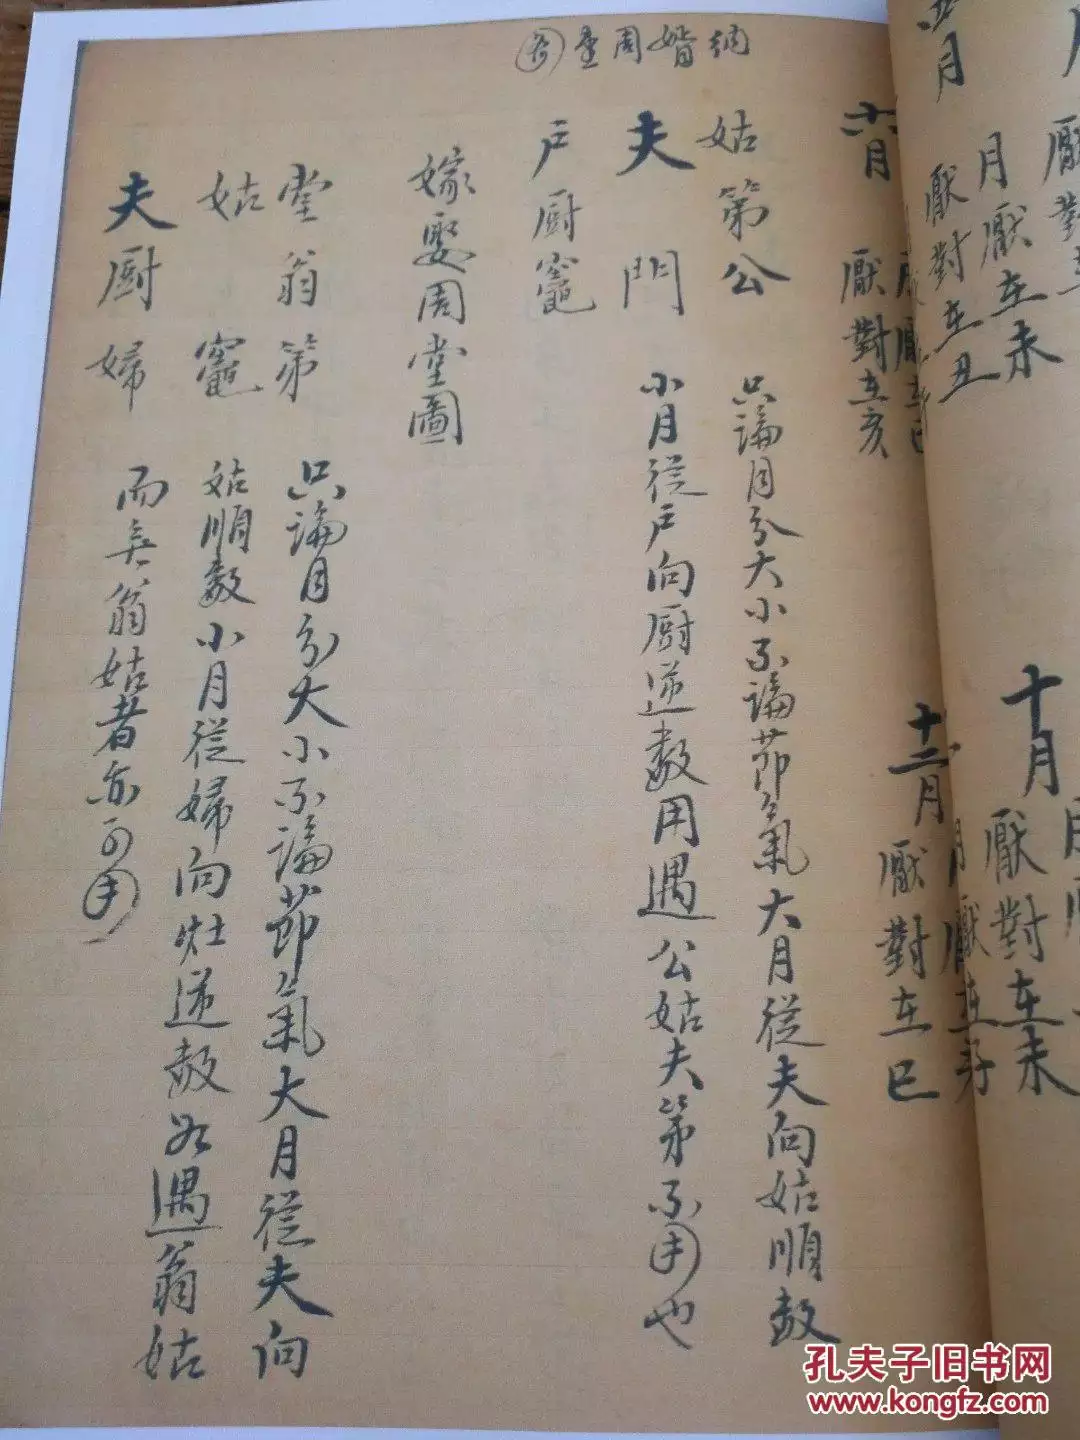 十月
厭對在未
五月
月厭在未
厭對在丑
六月
厭對在亥
十二月
月厭在子
厭對在巳
周婚納
姑第公
只論月分大小不論節氣大月從夫向姑順数
夫門
小月從戶向厨逆数用遇公姑夫第不用也
戶厨竈
嫁娶周堂圖
堂翁第
只論月分大小不論節氣大月從夫向
姑竈
姑順数小月從婦向灶逆数若遇翁姑
夫厨婦
而無翁姑者亦可用
孔夫子旧书网
www.kongfz.com